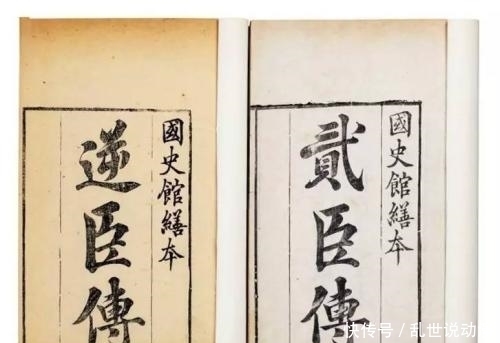 國史館繕本
貳臣傳
國史館繕本
逆臣傳
快传号/乱世说动